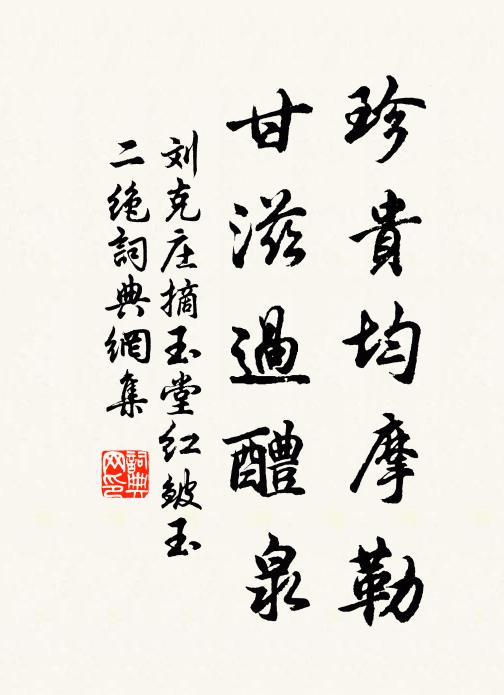 珍貴均摩勒
甘滋過醴泉
刘克庄摘玉堂红皱玉
二绝詞典網集
詞典
网印